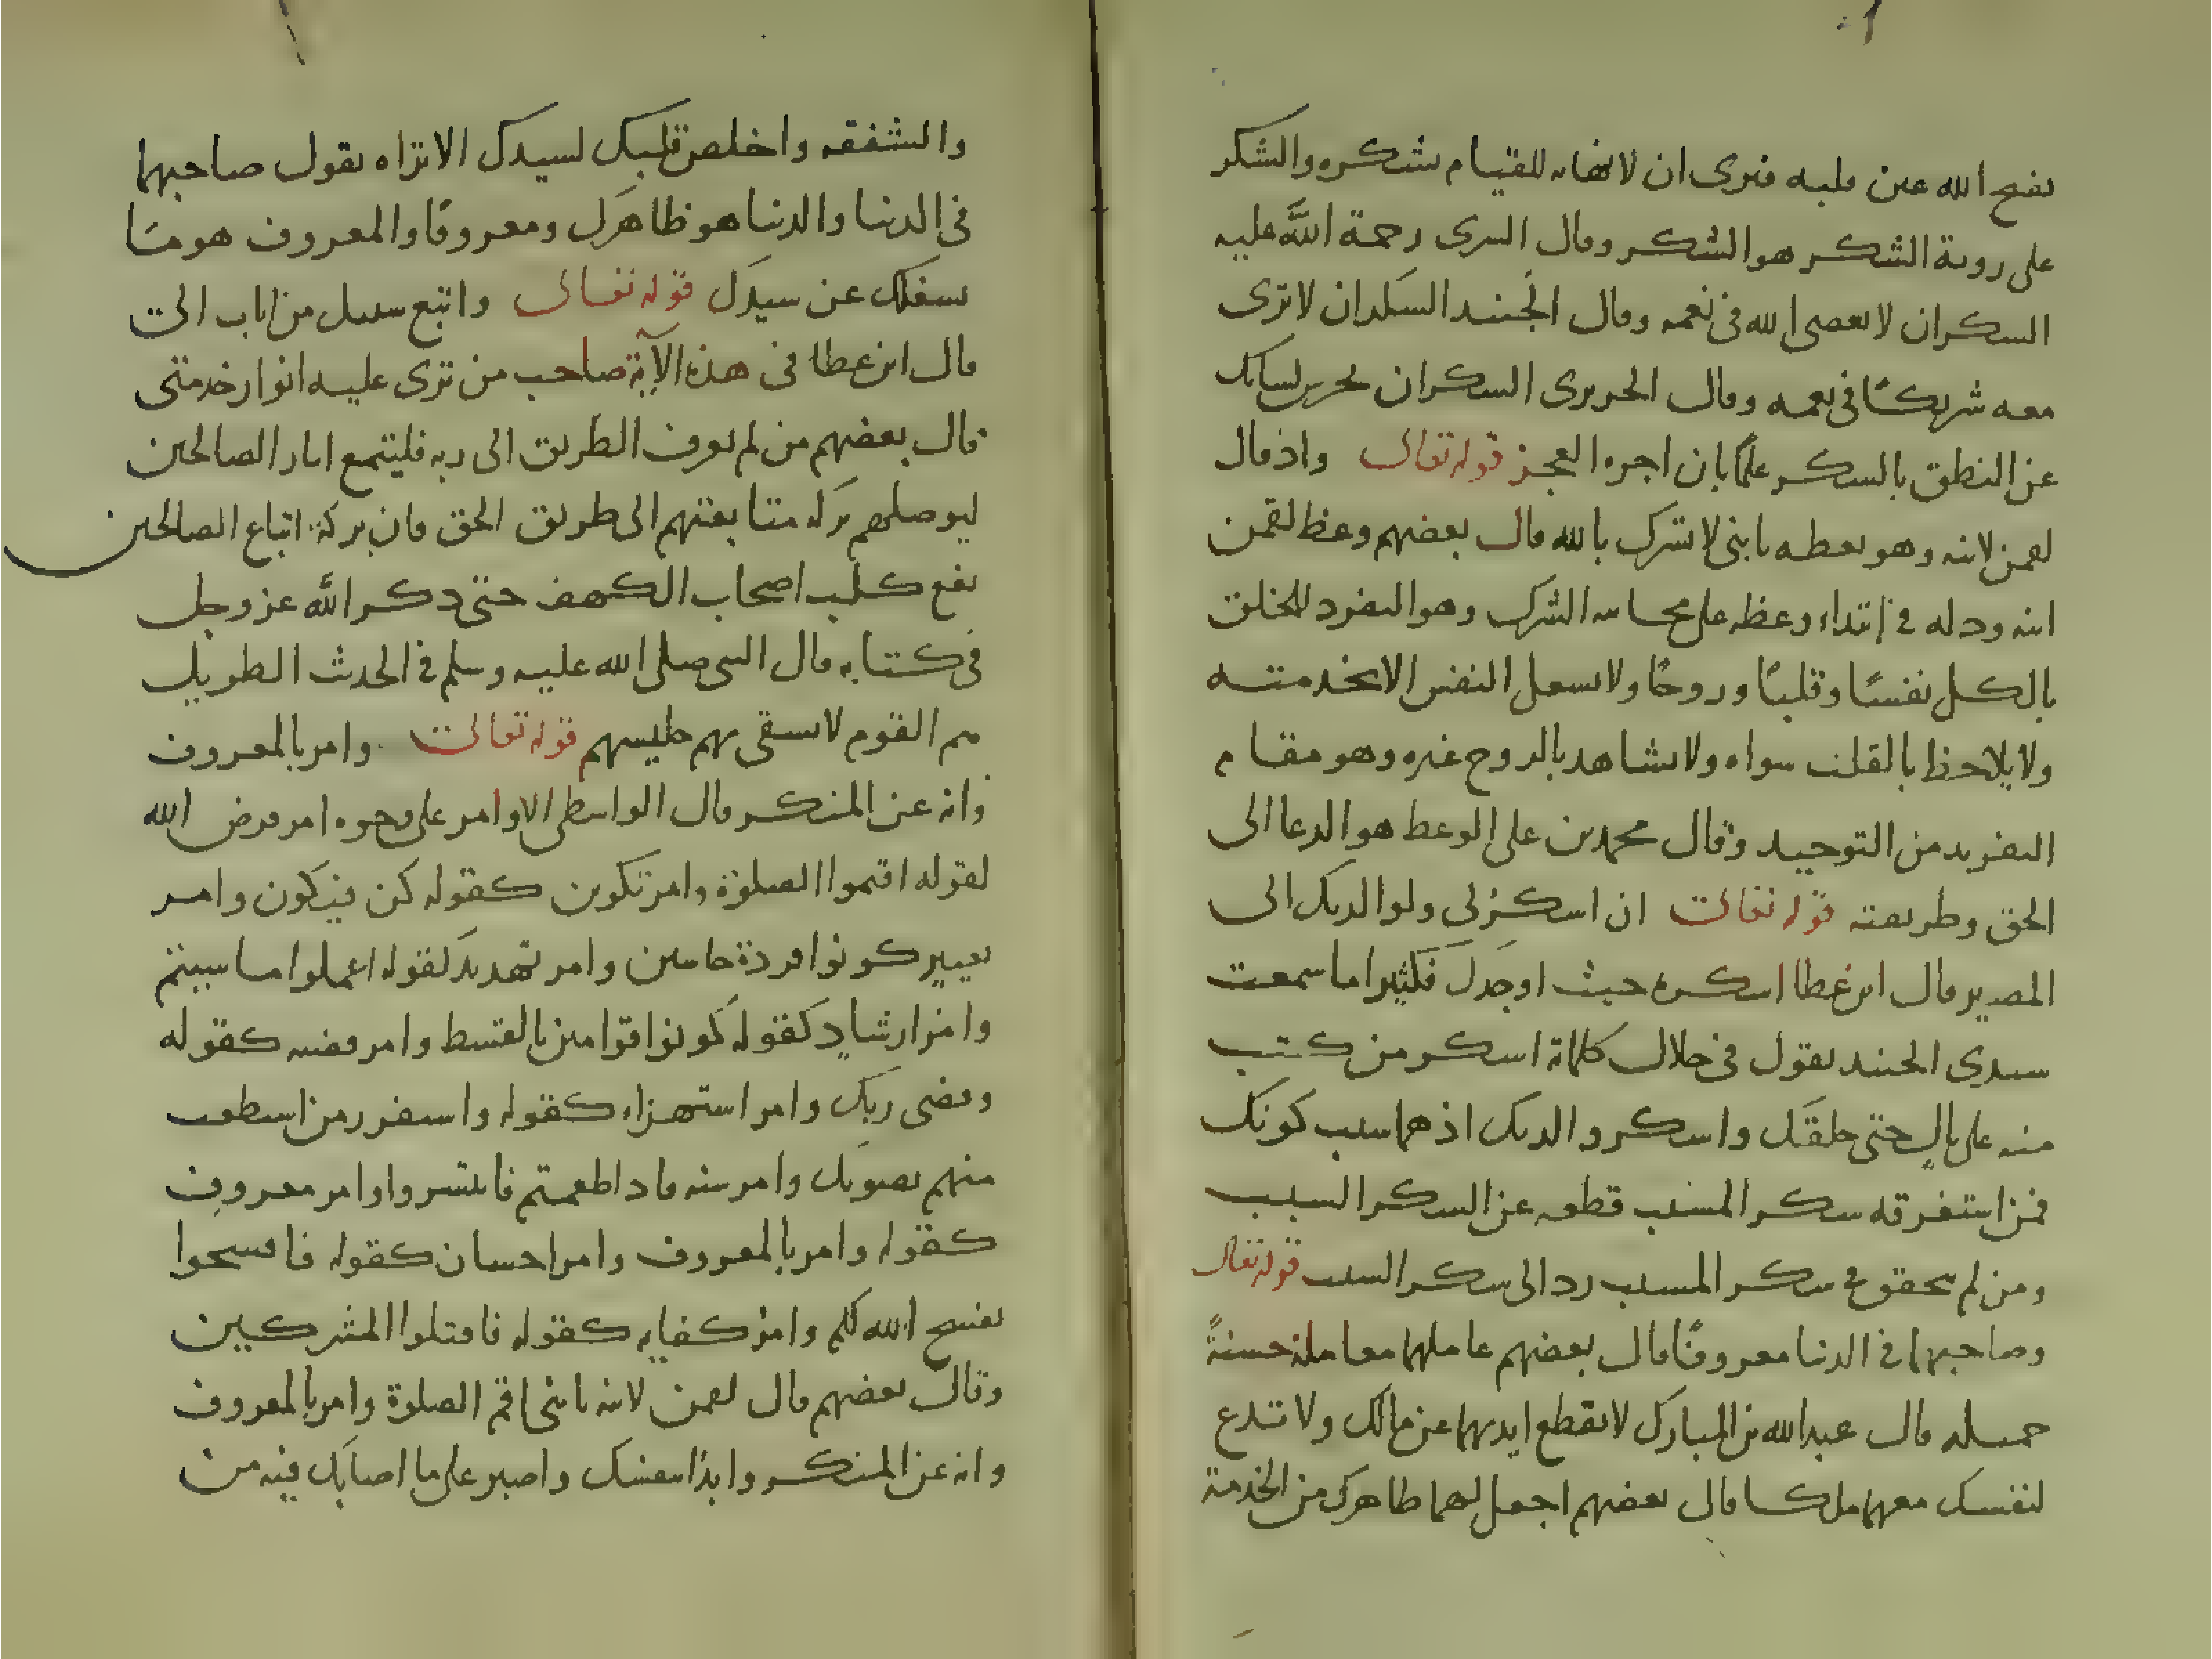 يفتح الله عين قلبه فيرى ان لا نهاية للقيام بشكره والشكر
على روية الشكر هو الشكر وقال السرى رحمة الله عليه
السكر ان لا يعصى الله فى نعمه وقال الجنيد السكر ان لا ترى
معه شريكا فى نعمه وقال الحريرى السكر ان تحرس لسانك
عن النطق بالسكر علما بان اجره العجز قوله تعالى واذ قال
لقمن لابنه وهو يعظه يابنى لا تشرك بالله قال بعضهم وعظ لقمن
ابنه ودله فى ابتداء وعظه على مجانبه الشرك وهو التفرد للخلق
بالكل نفسًا وقلبًا وروحًا ولا يشغل النفس الا بخدمته
ولا يلاحظ بالقلب سواه ولا يشاهد بالروح غيره وهو مقام
التفريد من التوحيد وقال محمد بن على الوعظ هو الدعا الى
الحق وطريقته قوله تعالى ان اسكر لى ولوالديك الى
المصير قال ابن عطا اسكره حيث اوجدك فكثيرا ما سمعت
سيدى الجنيد يقول فى خلال كلامه اسكر من كنت
منه على بال حتى خلقك واسكر والديك اذ هما سبب كونك
فمن استغرقه سكر المسبب قطعه عن السكر السبب
ومن لم يتحقق فى سكر المسبب رد الى سكر السبب قوله تعالى
وصاحبهما فى الدنيا معروفًا قال بعضهم عاملهما معاملة حسنةً
جميله قال عبد الله بن المبارك لا تقطع ايديهما عن مالك ولا تدع
لنفسك معهما ملكا قال بعضهم اجعل لهما ظاهرك من الخدمة
والشفقه واخلص قلبك لسيدك الا تراه يقول صاحبهما
فى الدنيا والدنيا هو ظاهرك ومعروفًا والمعروف هو ما
يشغلك عن سيدك قوله تعالى واتبع سبيل من اناب الى
قال ابن عطا فى هذه الآية صاحب من ترى عليه انوار خدمتى
قال بعضهم من لم يعرف الطريق الى ربه فليتبع اثار الصالحين
ليوصلهم بركه متابعتهم الى طريق الحق فان بركة اتباع الصالحين
نفع كلب اصحاب الكهف حتى ذكر الله عز وجل
فى كتابه قال النبى صلى الله عليه وسلم فى الحديث الطويل
هم القوم لا يشقى بهم جليسهم قوله تعالى وامر بالمعروف
وانه عن المنكر قال الواسطى الاوامر على وجوه امر فرض الله
لقوله اقيموا الصلوة وامر تكوين كقوله كن فيكون وامر
تعيير كونوا قردة خاسين وامر تهديد كقوله اعملوا ما شيتم
وامر ارشاد كقوله كونوا قوامين بالقسط وامر قضيه كقوله
وقضى ربك وامر استهزاء كقوله واستفزر من استطعت
منهم بصوتك وامر سنه فاذا طعمتم فانتشروا وامر معروف
كقوله وامر بالمعروف وامر احسان كقوله فافسحوا
يفسح الله لكم وامر كفايه كقوله فاقتلوا المشركين
وقال بعضهم قال لقمن لابنه يابنى اقم الصلوة وامر بالمعروف
وانه عن المنكر وابدا بنفسك واصبر على ما اصابك فيه من